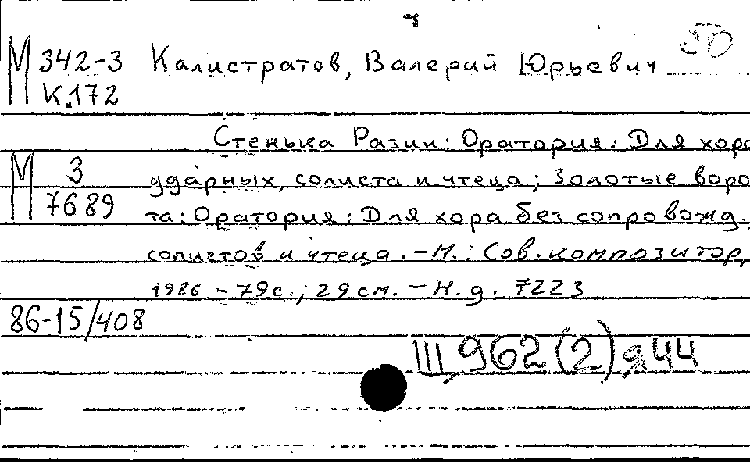 50
М 342-3 Калистратов, Валерий Юрьевич
К.172
Стенька Разин: Оратория: Для хора
М 3 ударных, солиста и чтеца; Золотые воро
7689 та: Оратория: Для хора без сопровожд.
солистов и чтеца. - М.: Сов. композитор,
1986 - 79с.; 29см. - Н.д. 7223
86-15/408
III 962(2) 944